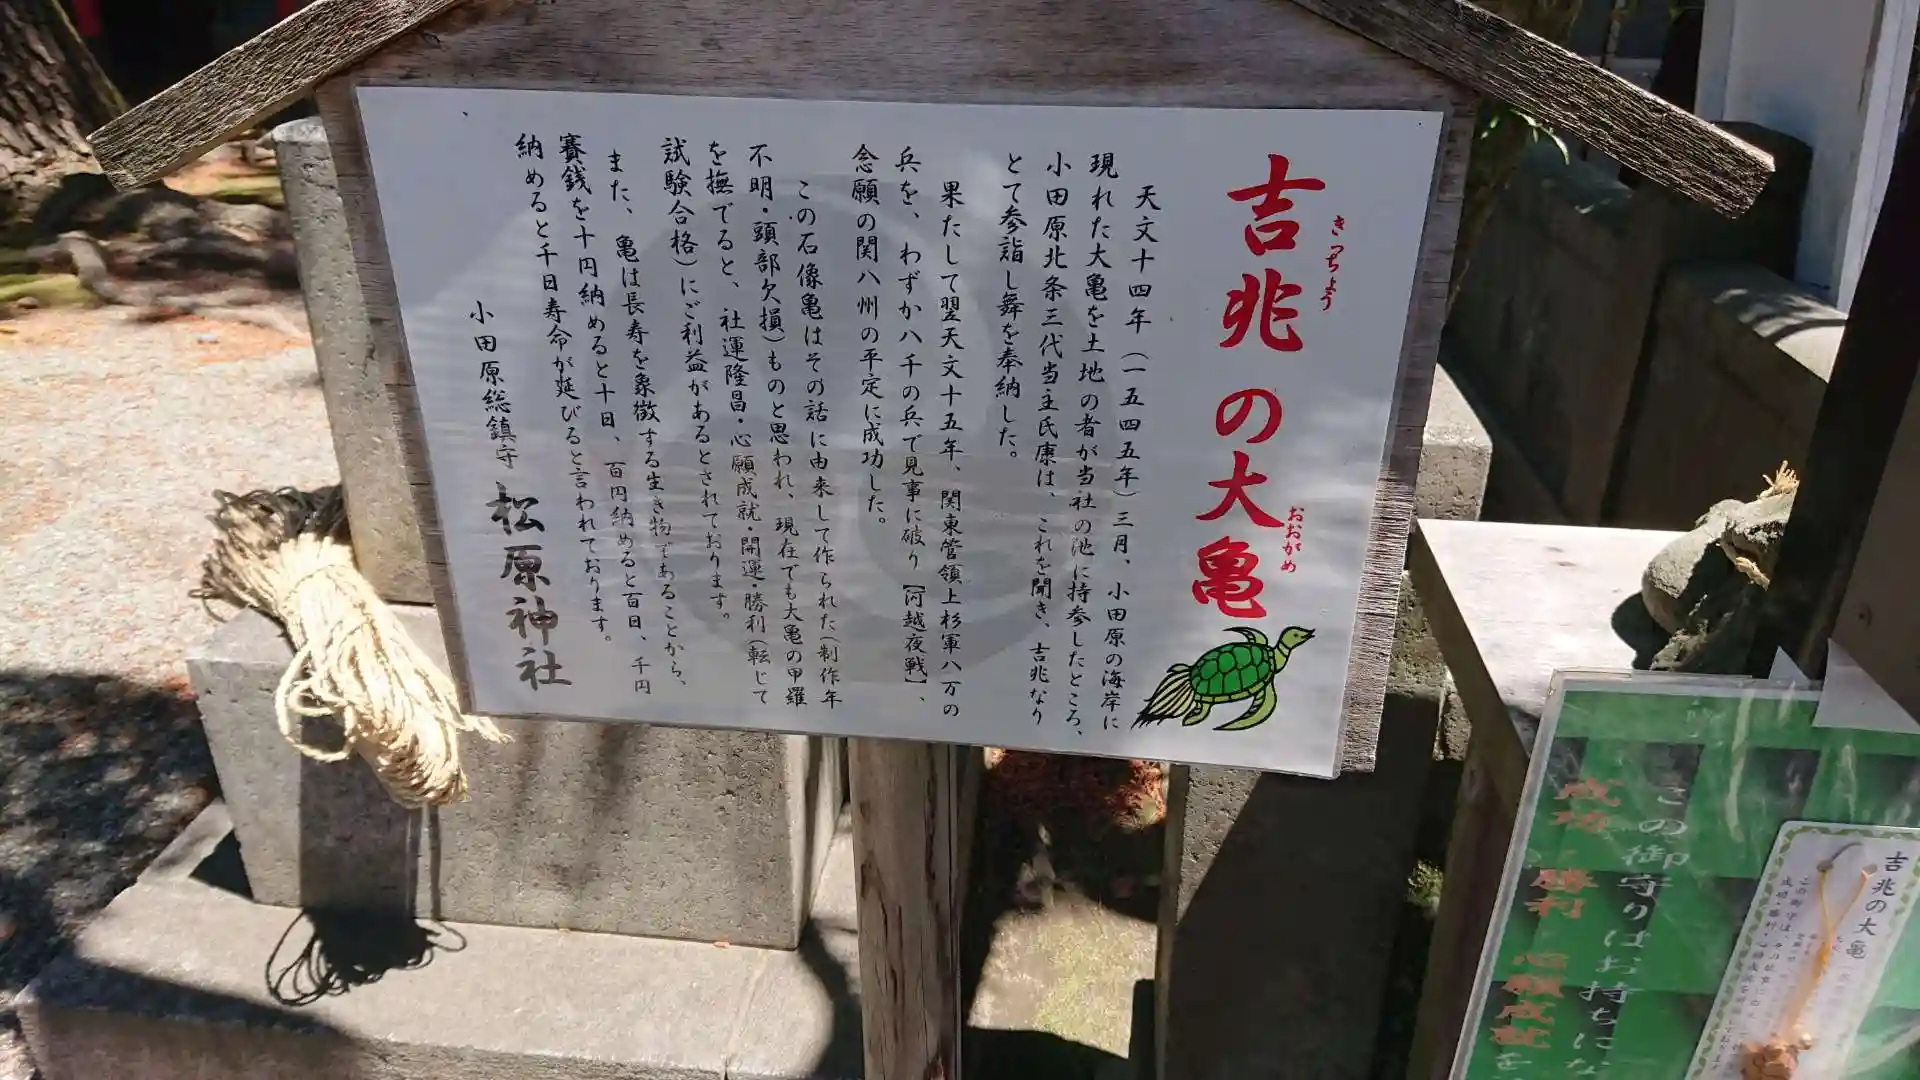 吉兆の大亀
きっちょう
おおがめ
天文十四年(一五四五年)三月、小田原の海岸に
現れた大亀を土地の者が当社の池に持参したところ、
小田原北条三代当主氏康は、これを聞き、吉兆なり
とて参詣し舞を奉納した。
果たして翌天文十五年、関東管領上杉軍八万の
兵を、わずか八千の兵で見事に破り【河越夜戦】、
念願の関八州の平定に成功した。
この石像亀はその話に由来して作られた(制作年
不明・頭部欠損)ものと思われ、現在でも大亀の甲羅
を撫でると、社運隆昌・心願成就・開運・勝利(転じて
試験合格)にご利益があるとされております。
また、亀は長寿を象徴する生き物であることから、
賽銭を十円納めると十日、百円納めると百日、千円
納めると千日寿命が延びると言われております。
小田原総鎮守 松原神社
この御守りはお持ちにな
成功 勝利 心願成就を
吉兆の大亀